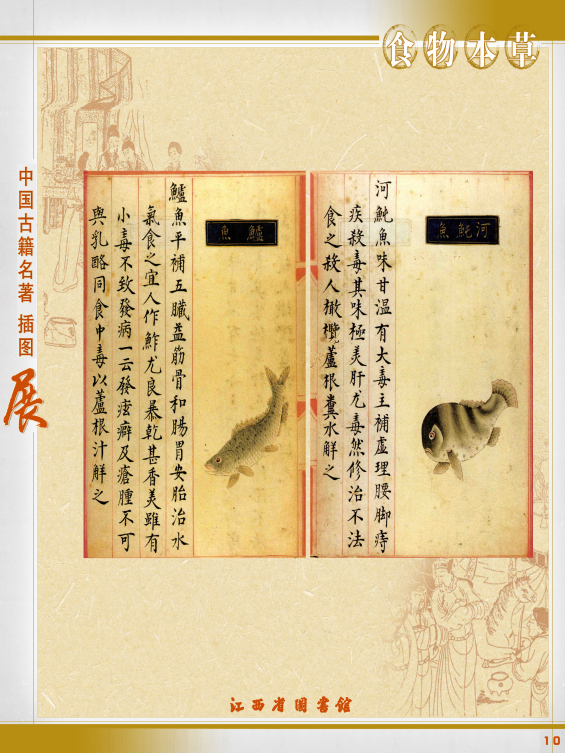 食物本草
中国古籍名著插图
展
河魨魚
河魨魚味甘温有大毒主補虛理腰脚痔
疾殺毒其味極美肝尤毒然修治不法
食之殺人橄欖蘆根糞水解之
鱸魚
鱸魚平補五臟益筋骨和腸胃安胎治水
氣食之宜人作鮓尤良暴乾甚香美雖有
小毒不致發病一云發痃癖及瘡腫不可
與乳酪同食中毒以蘆根汁解之
江西省图書館
10